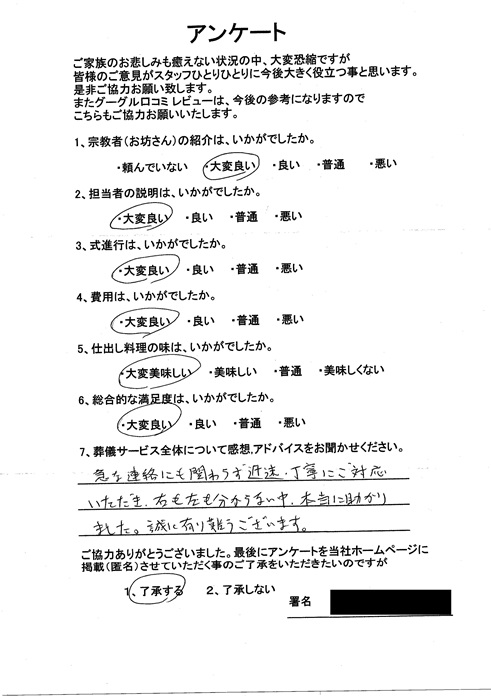 アンケート
ご家族のお悲しみも癒えない状況の中、大変恐縮ですが
皆様のご意見がスタッフひとりひとりに今後大きく役立つ事と思います。
是非ご協力お願い致します。
またグーグル口コミレビューは、今後の参考になりますので
こちらもご協力お願いいたします。
1、宗教者(お坊さん)の紹介は、いかがでしたか。
・頼んでいない ・大変良い ・良い ・普通 ・悪い
2、担当者の説明は、いかがでしたか。
・大変良い ・良い ・普通 ・悪い
3、式進行は、いかがでしたか。
・大変良い ・良い ・普通 ・悪い
4、費用は、いかがでしたか。
・大変良い ・良い ・普通 ・悪い
5、仕出し料理の味は、いかがでしたか。
・大変美味しい ・美味しい ・普通 ・美味しくない
6、総合的な満足度は、いかがでしたか。
・大変良い ・良い ・普通 ・悪い
7、葬儀サービス全体について感想,アドバイスをお聞かせください。
急な連絡にも関わらず迅速・丁寧にご対応
いただき、右も左も分からない中、本当に助かり
ました。誠に有り難うございます。
ご協力ありがとうございました。最後にアンケートを当社ホームページに
掲載(匿名)させていただく事のご了承をいただきたいのですが
1、了承する 2、了承しない
署名